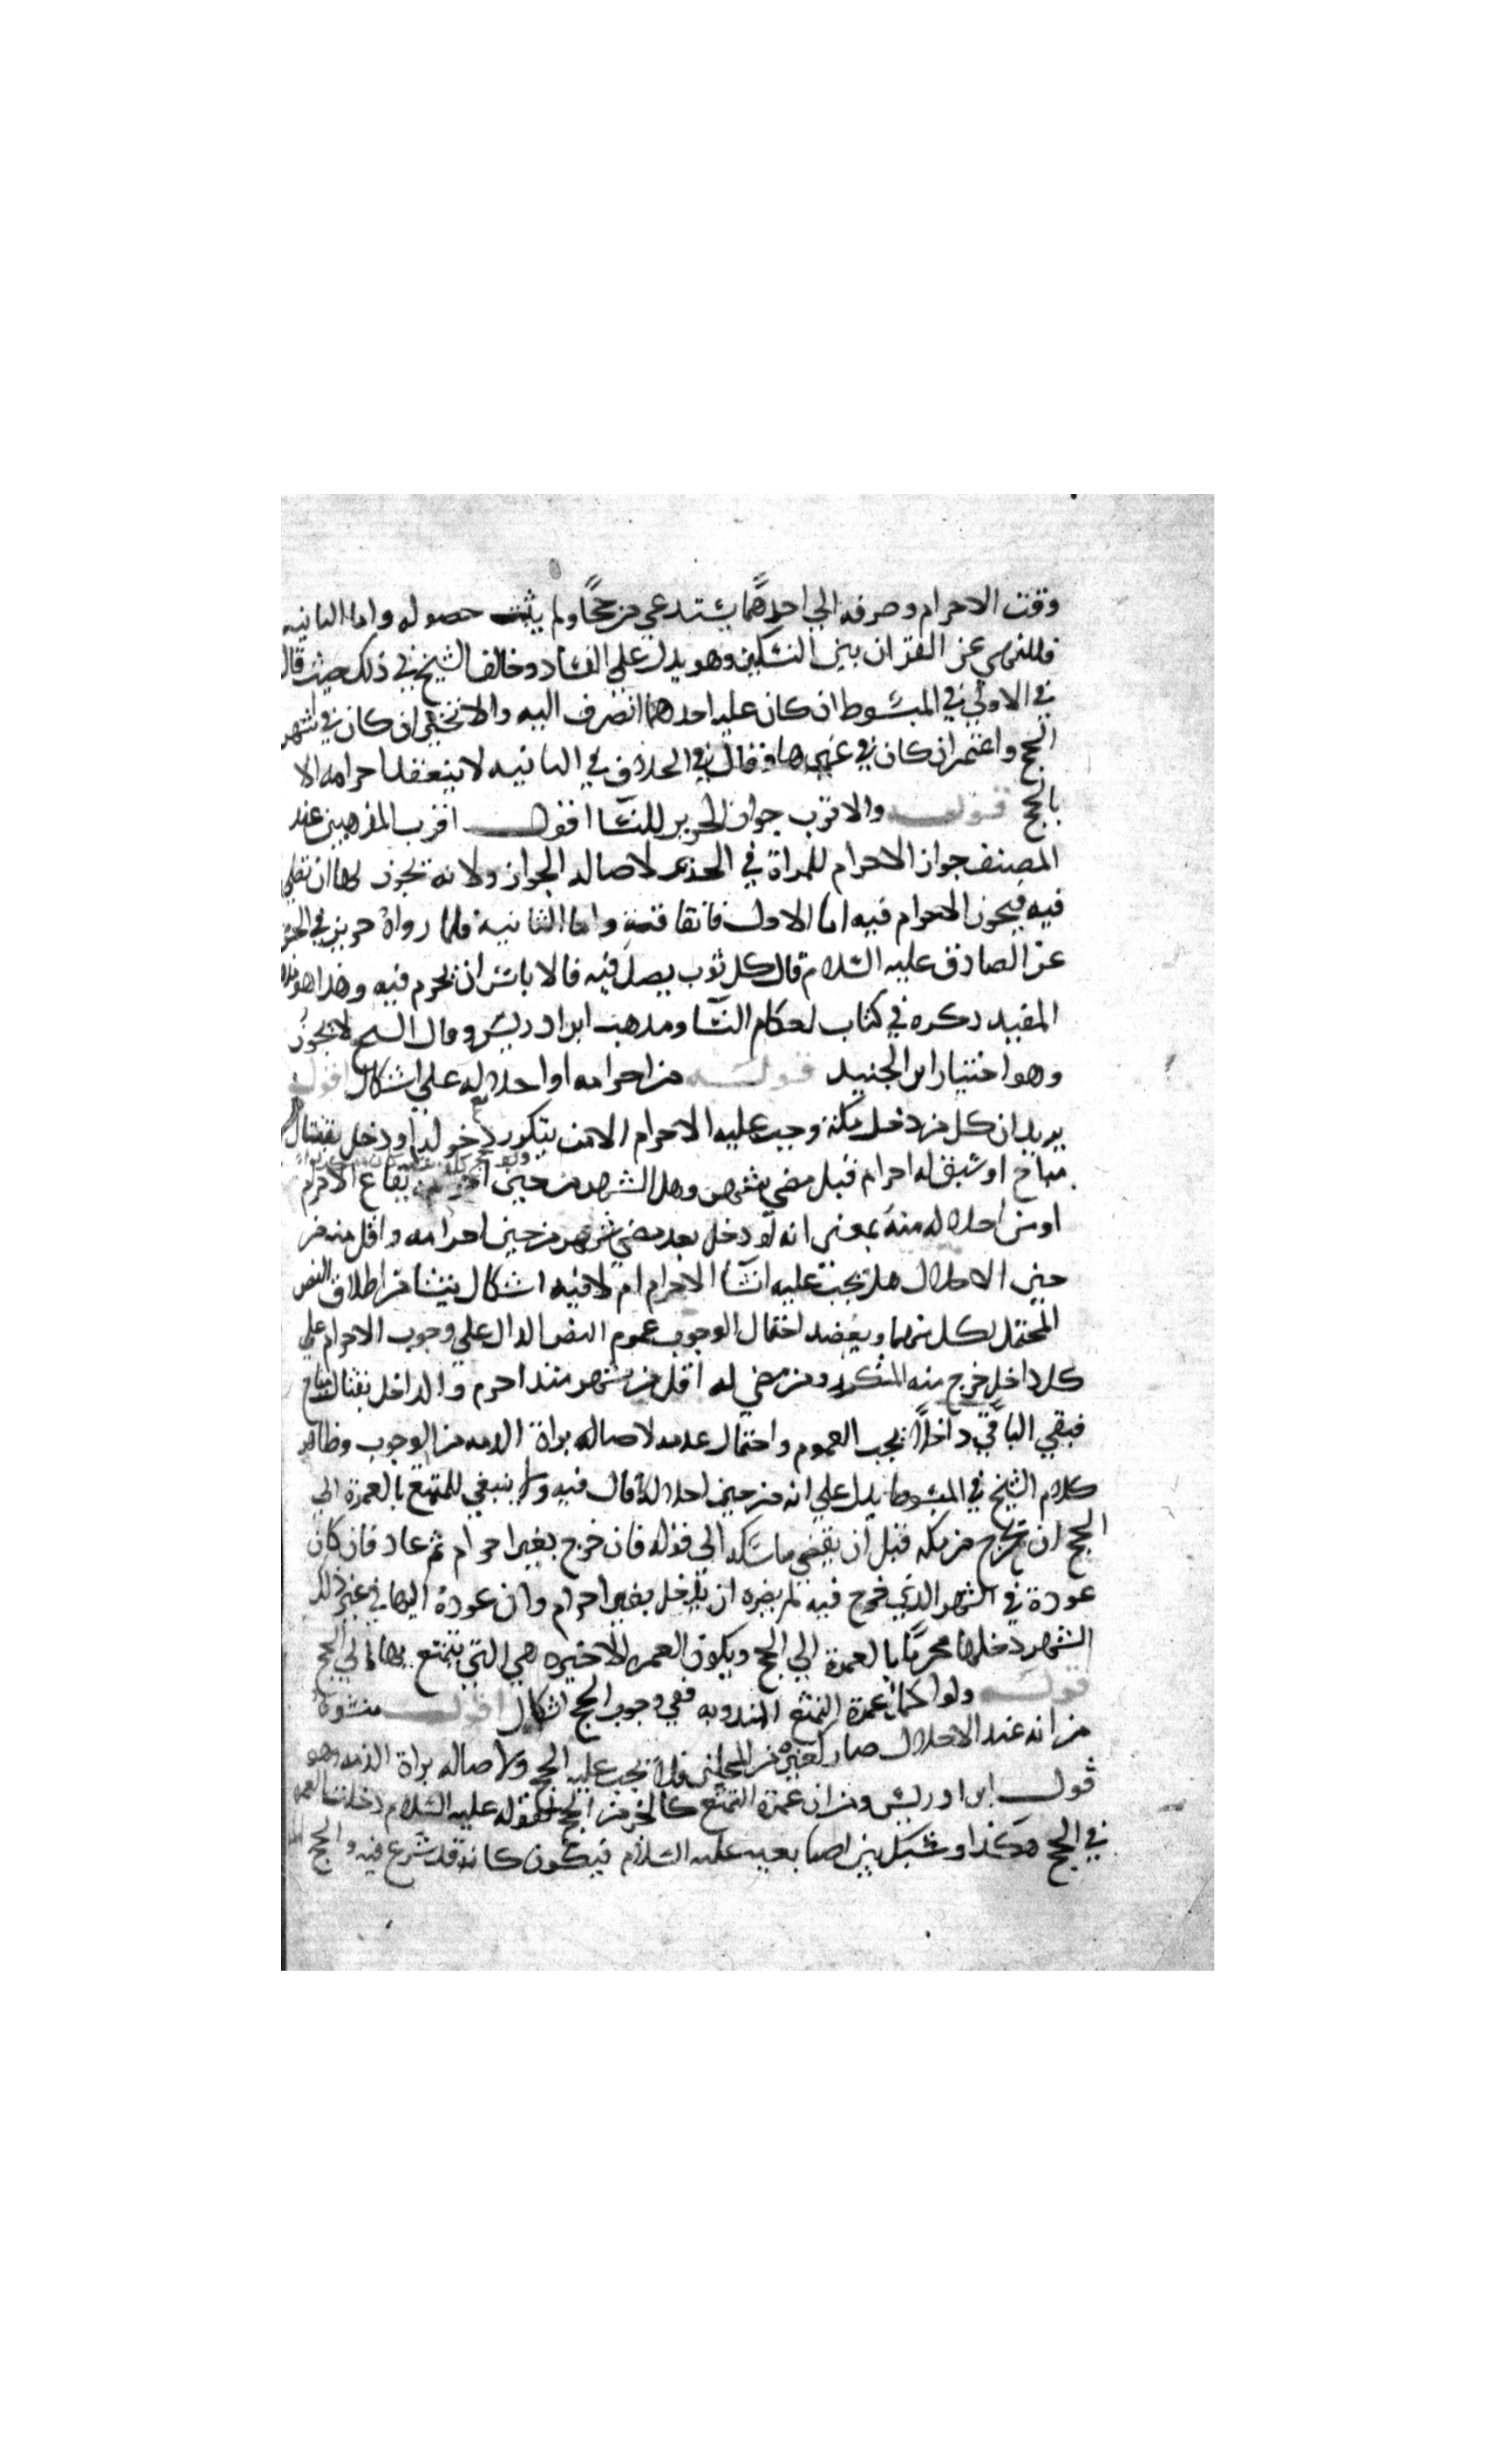 وقت الاحرام وصرفه الي احدهما يستدعي مرجحًا ولم يثبت حصوله واما الثانيه
فللنهي عن القران بين النسكين وهو يدل علي الفساد وخالف الشيخ في ذلك حيث قال
في الاولي في المبسوط ان كان عليه احدهما انصرف اليه والا تخير ان كان في اشهر
الحج واعتمر ان كان في غيرها وقال في الخلاف في الثانيه لا ينعقد احرامه الا
بالحج قوله والاقرب جواز الحرير للنسآ اقول اقرب المذهبين عند
المصنف جواز الاحرام للمراة في الحرير لاصاله الجواز ولانه تجوز لها ان تصلي
فيه فيجوز الاحرام فيه اما الاول فاتفاقيه واما الثانية فلما رواه حريز في الحسن
عن الصادق عليه السلام قال كل ثوب يصل فيه فالا باس ان تحرم فيه وهذا هو مذهب
المفيد ذكره في كتاب احكام النسآ ومذهب ابن ادريس وقال الشيخ لا يجوز
وهو اختيار ابن الجنيد قوله من احرامه او احلاله علي اشكال اقول
يريد ان كل من دخل مكة وجب عليه الاحرام الا من يتكرر دخوله او دخل بقتال
مباح او سبق له احرام قبل مضي شهر وهل الشهر من حين ايقاع الاحرام
او من احلاله منه بمعني انه لو دخل بعد مضي شهر من حين احرامه واقل منه من
حين الاحلال هل يجب عليه انشآ الاحرام ام لا فيه اشكال ينشا من اطلاق النص
المحتمل لكل منهما ويعضد احتمال الوجوب عموم النص الدال علي وجوب الاحرام علي
كل داخل خرج منه المتكرر ومن مضي له اقل من شهر منذ احرم والداخل بقتال مباح
فبقي الباقي داخلًا تحت العموم واحتمال عدمه لاصاله براة الذمه من الوجوب وظاهر
كلام الشيخ في المبسوط يدل علي انه من حين احلاله قال فيه ولا ينبغي للمتمتع بالعمرة الي
الحج ان يخرج من مكه قبل ان يقضي مناسكه الي قوله فان خرج بغير احرام ثم عاد فان كان
عوده في الشهر الذي خرج فيه لم يضره ان يدخل بغير احرام وان عوده اليها في غير ذلك
الشهر دخلها محرمًا بالعمرة الي الحج ويكون العمره الاخيره هي التي يتمتع بها الي الحج
قوله ولو اكمل عمرة التمتع المندوبه ففي وجوب الحج اشكال اقول منشوه
من انه عند الاحلال صار كغيره من المحلين فلا يجب عليه الحج ولاصاله براة الذمه وهو
قول ابن ادريس ومن ان عمرة التمتع كالجزء من الحج لقوله عليه السلام دخلت العمره
في الحج هكذا وشبك بين اصابعيه عليه السلام فيكون كانه قد شرع فيه والحج